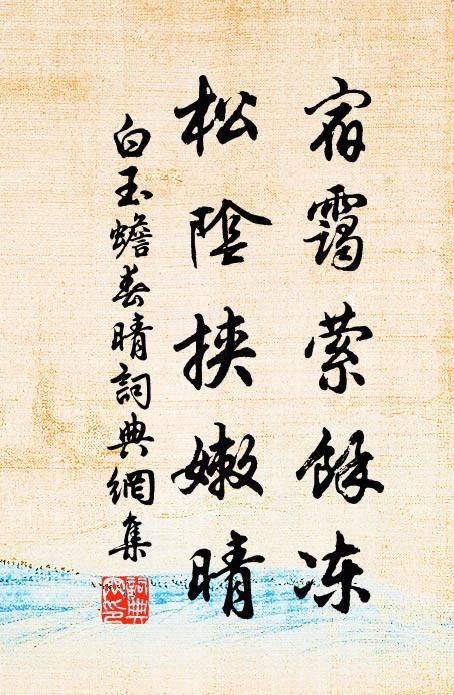 宿靄縈餘冻
松陰挟嫩晴
白玉蟾春晴詞典網集